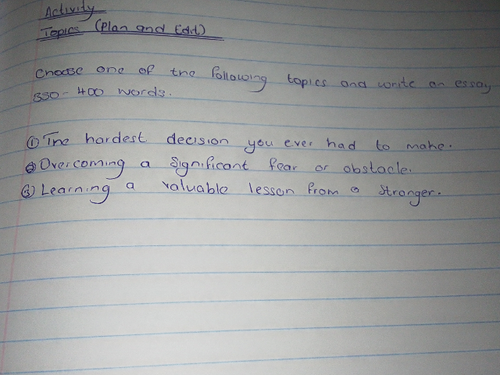 Activity
Topics (Plan and Edit)
Choose one of the following topics and write an essay
350-400 words.
① The hardest decision you ever had to make.
② Overcoming a significant fear or obstacle.
③ Learning a valuable lesson from a stranger.